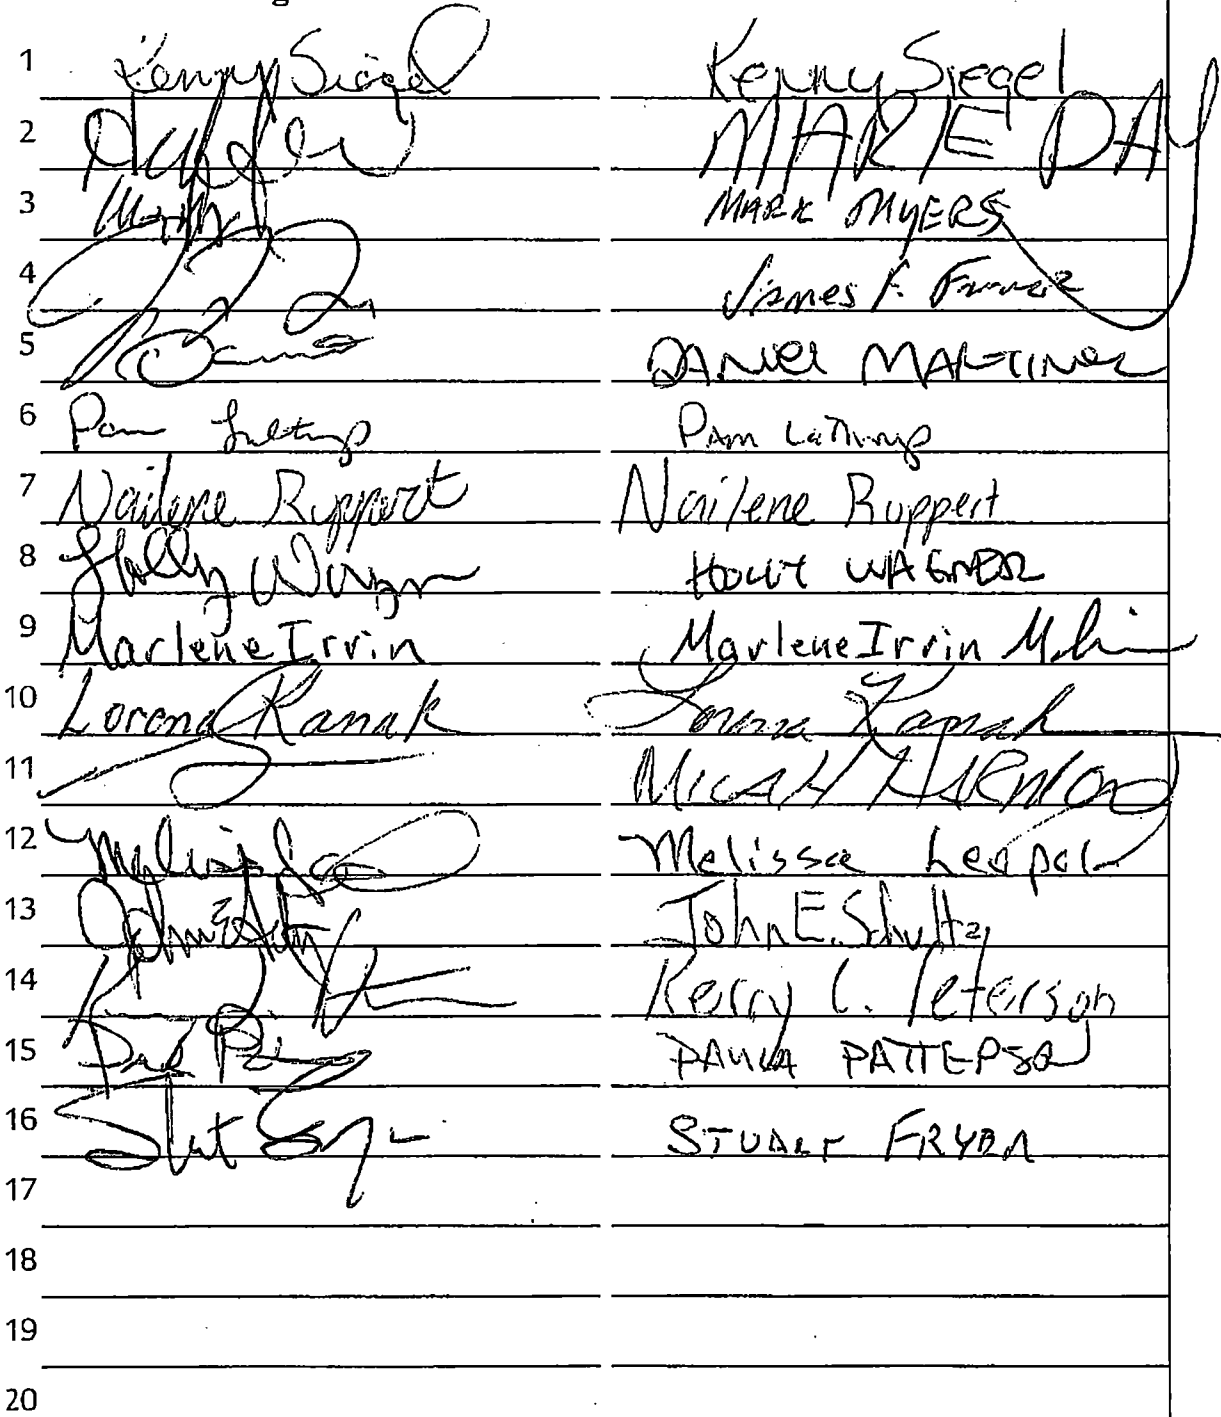 1 Kenny Siegel Kenny Siegel
2 MARIE DAY
3 MARK MYERS
4 James F.
5 DANIEL MARTINEZ
6 Pam Lathrop Pam Lathrop
7 Nailene Ruppert Nailene Ruppert
8 Holly Wagner HOLLY WAGNER
9 Marlene Irvin Marlene Irvin
10 Lorena Kanak Lorena Kanak
11 MICAH
12 Melissa Melissa Leopold
13 John E. Schultz
14 Kerry L. Peterson
15 PAULA PATTERSON
16 STUART FRYER
17
18
19
20